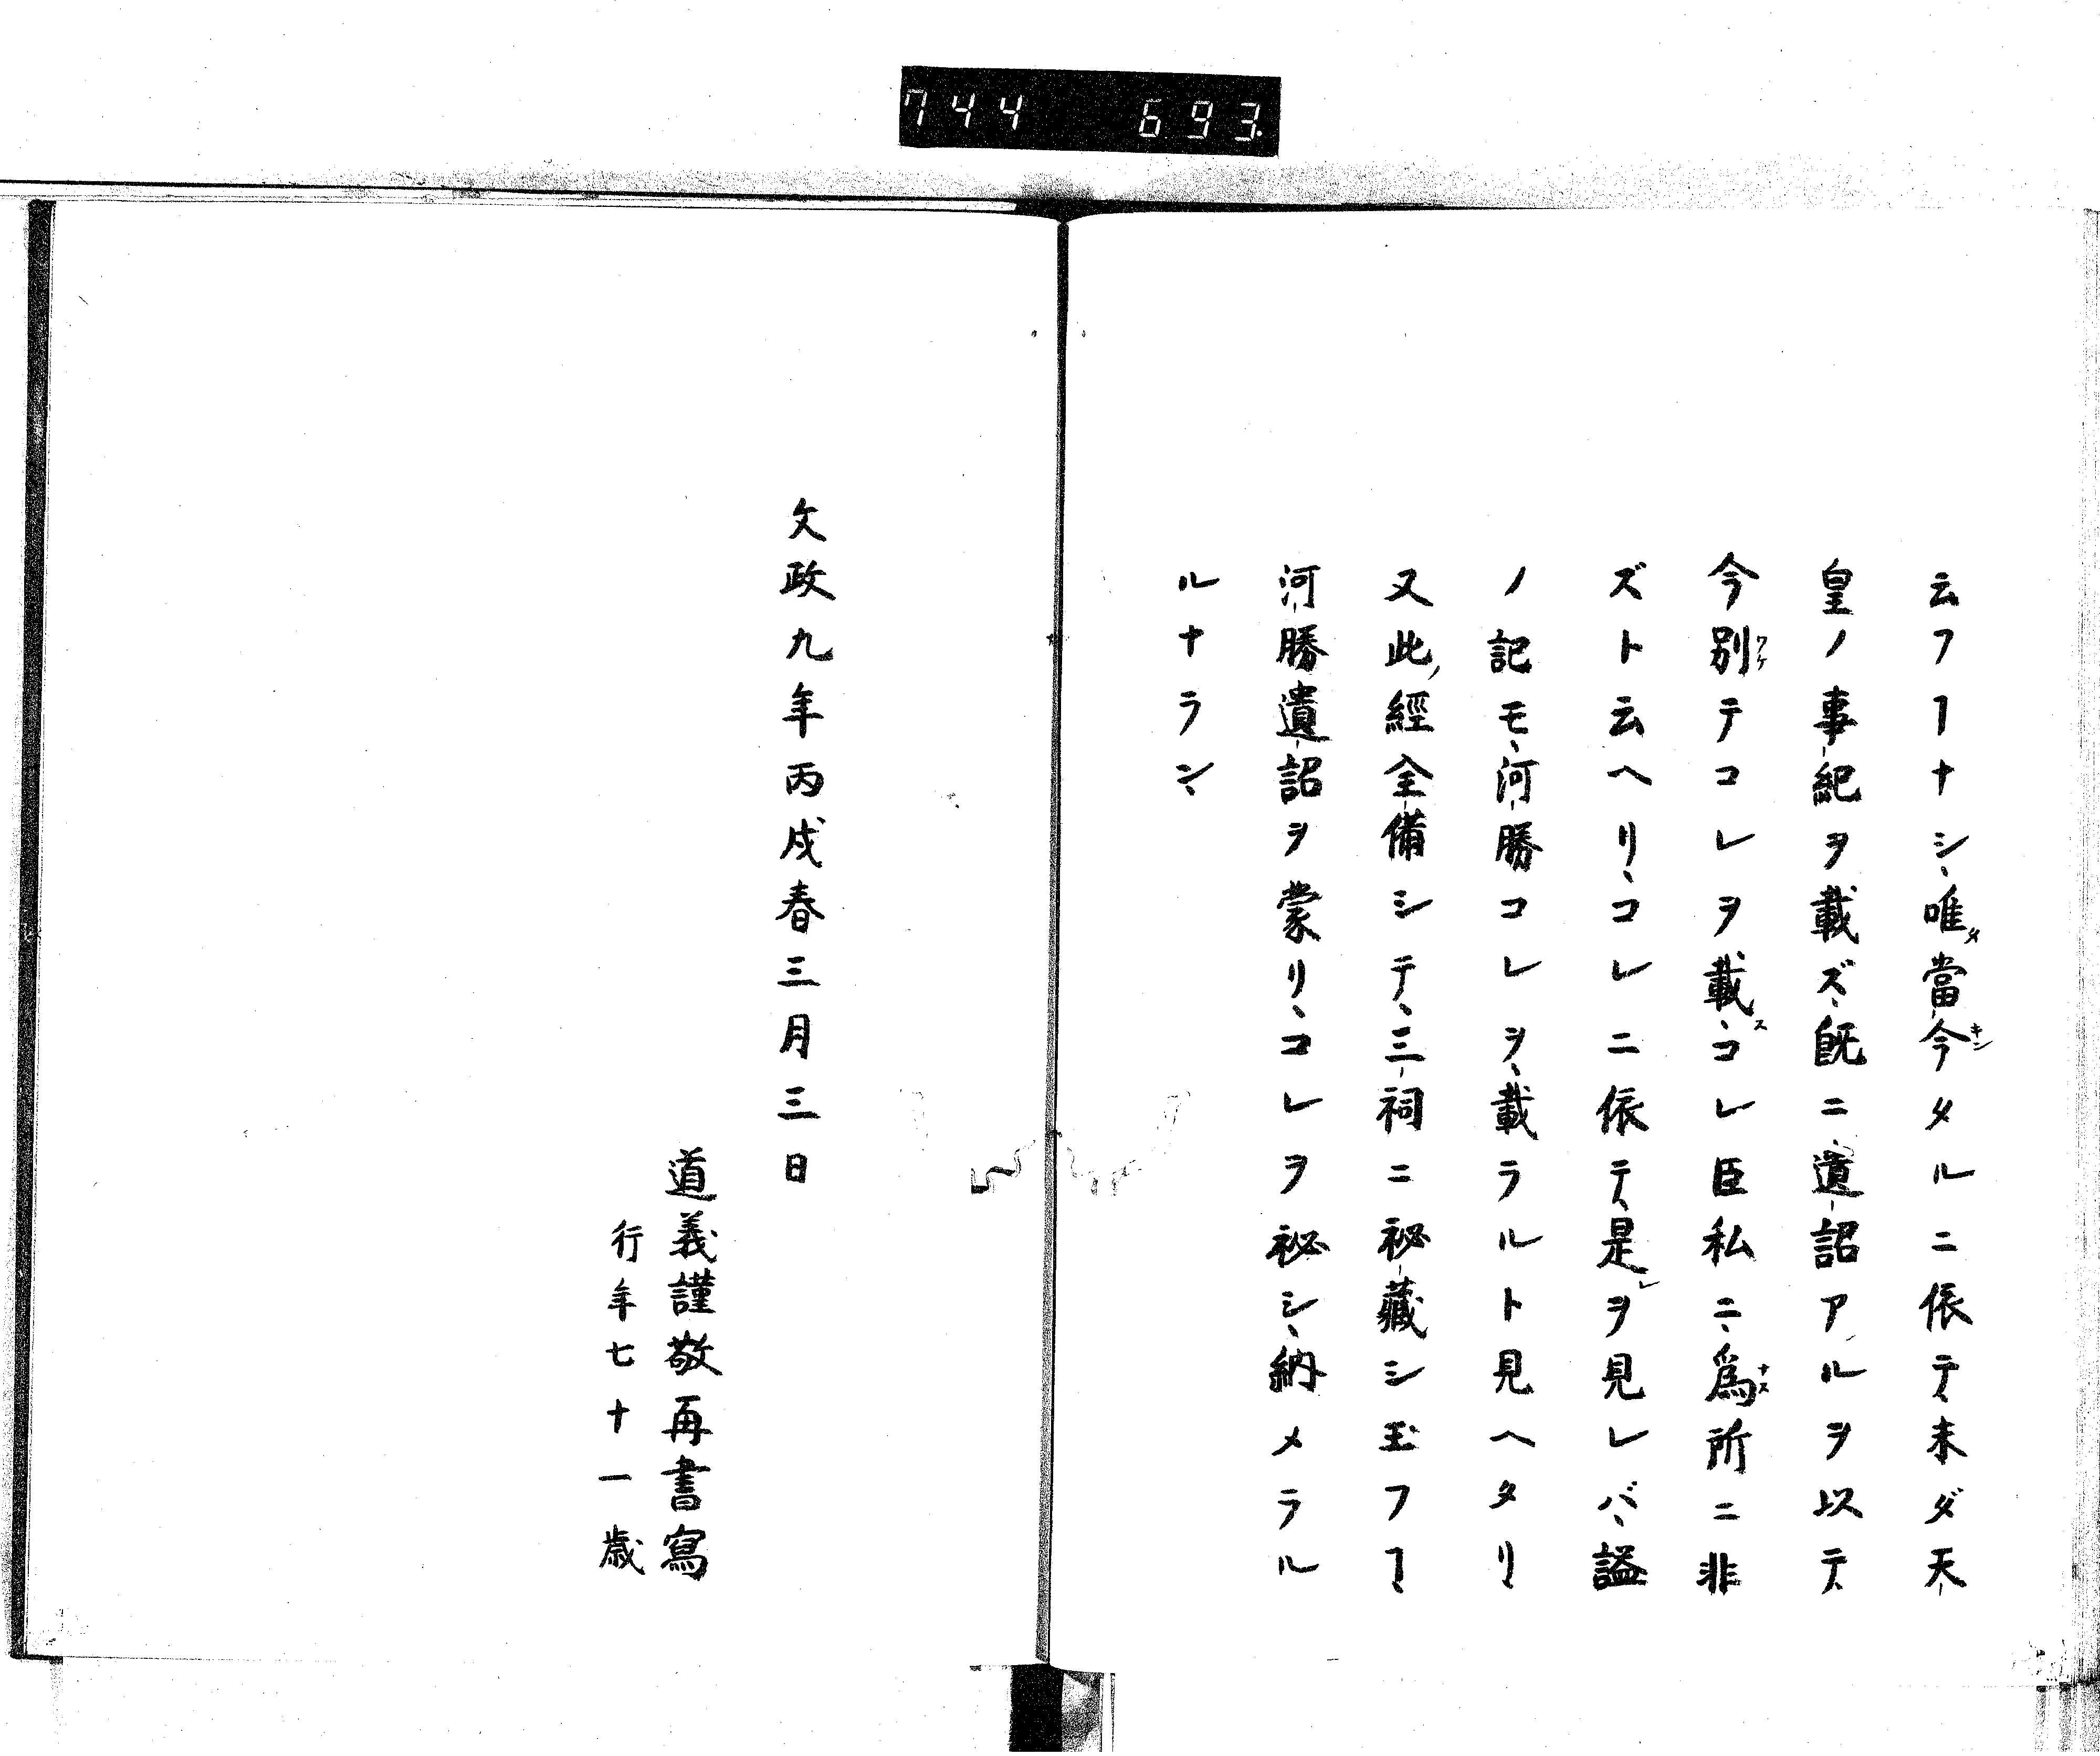 744 693.
云フヿナシ、唯當今タルニ依テ、未ダ天
皇ノ事紀ヲ載ズ、既ニ遺詔アルヲ以テ、
今別テコレヲ載、コレ臣私ニ、爲所ニ非
ズト云ヘリ、コレニ依テ、是ヲ見レバ、謚
ノ記モ、河勝コレヲ、載ラルト見ヘタリ、
又此經全備シテ、三祠ニ祕藏シ玉フヿ、
河勝遺詔ヲ蒙リ、コレヲ祕シ、納メラル
ルナラン、
文政九年丙戌春三月三日
道義謹敬再書寫
行年七十一歳